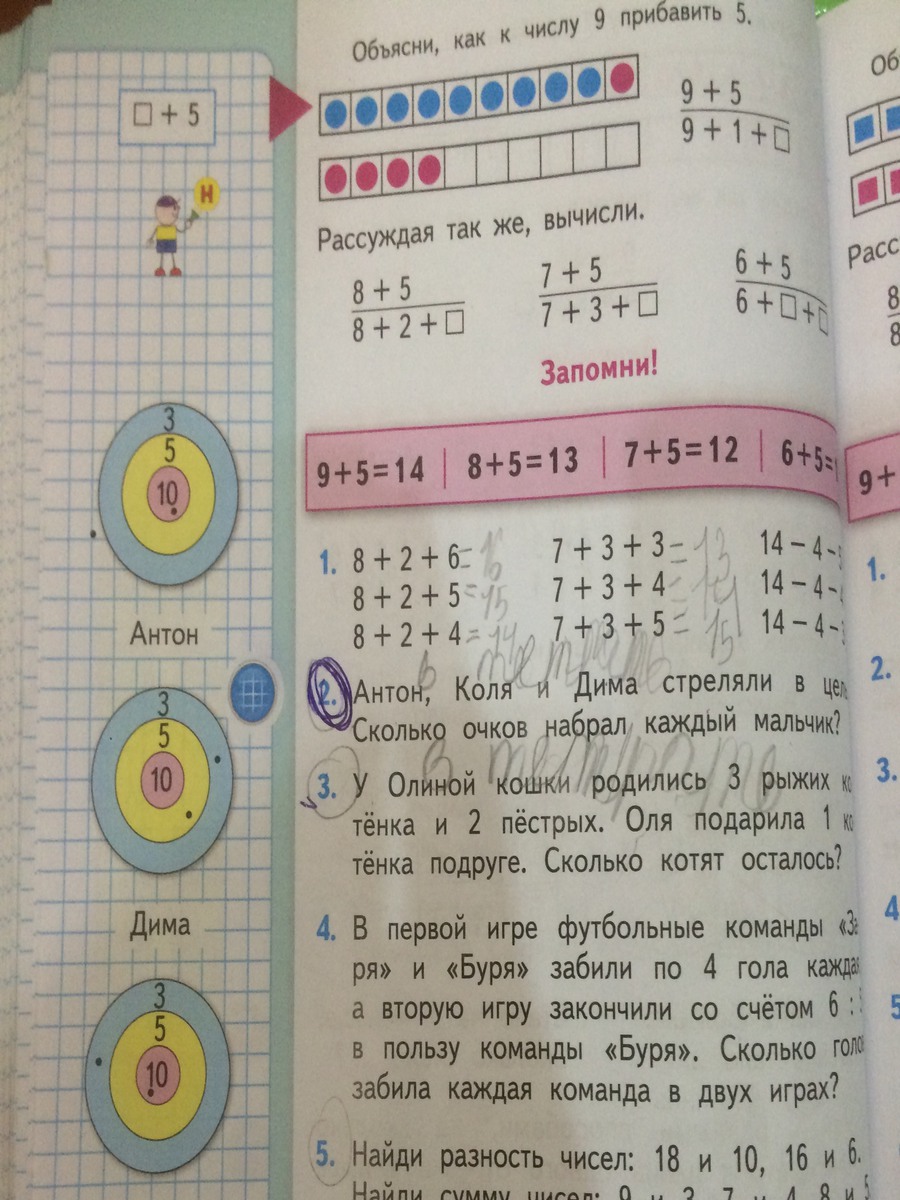 Объясни, как к числу 9 прибавить 5.
□ + 5
9 + 5
9 + 1 + □
Н
Рассуждая так же, вычисли.
8 + 5
8 + 2 + □
7 + 5
7 + 3 + □
6 + 5
6 + □ + □
Запомни!
9+5=14 8+5=13 7+5=12 6+5=
3
5
10
Антон
3
5
10
Дима
3
5
10
1. 8 + 2 + 6 = 16 7 + 3 + 3 = 13 14 − 4 −
8 + 2 + 5 = 15 7 + 3 + 4 = 14 14 − 4 −
8 + 2 + 4 = 14 7 + 3 + 5 = 15 14 − 4 −
в тетрадь
2. Антон, Коля и Дима стреляли в
Сколько очков набрал каждый мальчик?
в тетрадь
3. У Олиной кошки родились 3 рыжих ко
тёнка и 2 пёстрых. Оля подарила 1 ко
тёнка подруге. Сколько котят осталось?
4. В первой игре футбольные команды «За
ря» и «Буря» забили по 4 гола
а вторую игру закончили со счётом 6 :
в пользу команды «Буря». Сколько
забила каждая команда в двух играх?
5. Найди разность чисел: 18 и 10, 16 и 6.
Найди сумму чисел: 9 и 3, 7 и 4, 8 и 5
Об
Расс
8
8
9+
1.
2.
3.
4
5